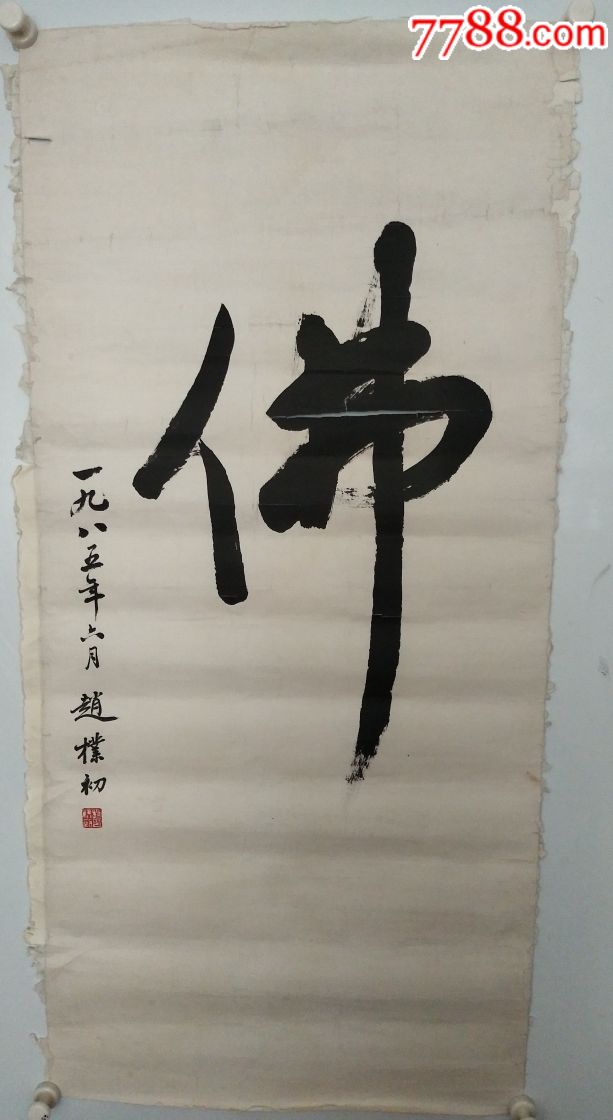 7788.com
佛
一九八五年六月 趙樸初